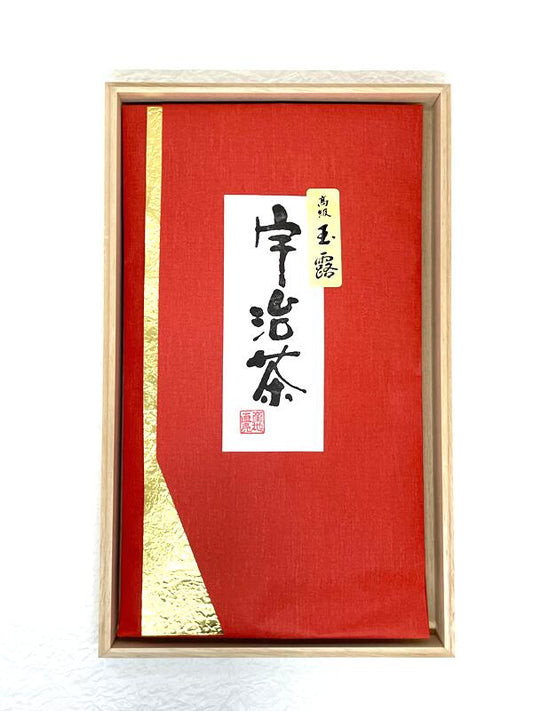 高級 玉露
宇治茶
産地直売